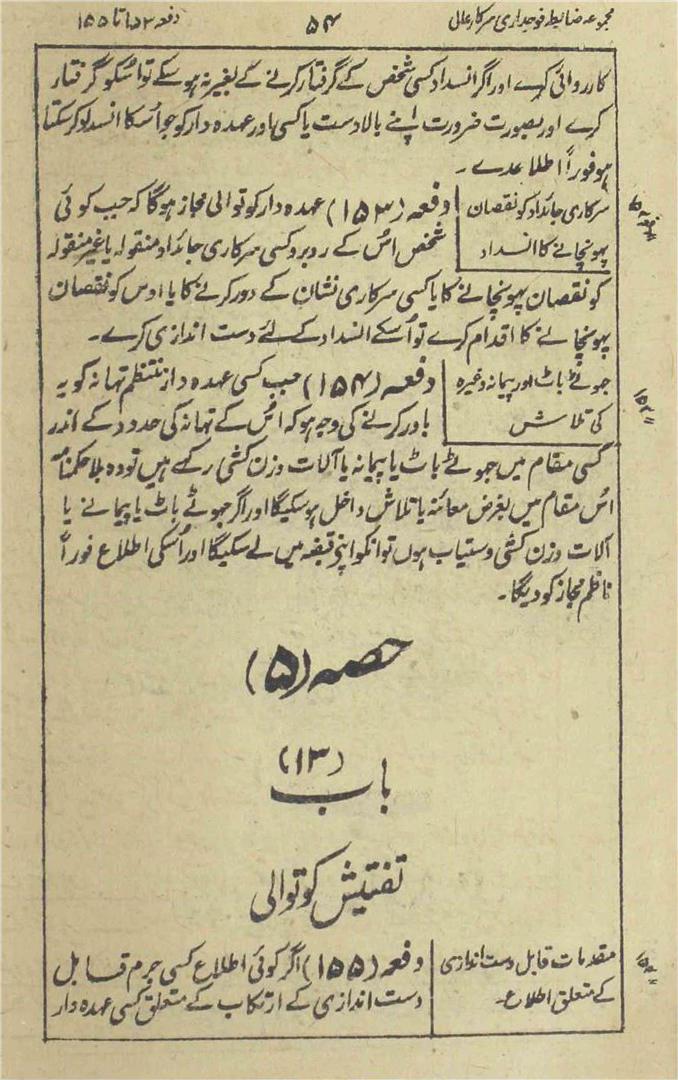 مجموعہ ضابطہ فوجداری سرکار عالی ۵۴ دفعہ ۱۵۳ تا ۱۵۵
کارروائی کرے اور اگر انسداد کسی شخص کے گرفتار کرنے کے بغیر نہ ہو سکے تو اسکو گرفتار
کرے اور بصورت ضرورت اپنے بالادست یا کسی اور عہدہ دار کو جو اُسکا انسداد کر سکتا
ہو فوراً اطلاعدے۔
سرکاری جائداد کو نقصان
پہونچانے کا انسداد
دفعہ (۱۵۳) عہدہ دار کوتوالی مجاز ہوگا کہ جب کوئی
شخص اُس کے روبرو کسی سرکاری جائداد منقولہ یا غیر منقولہ
کو نقصان پہونچانے کا یا کسی سرکاری نشان کے دور کرنے کا یا اوس کو نقصان
پہونچانے کا اقدام کرے تو اُسکے انسداد کے لئے دست اندازی کرے۔
جوٹے باٹ اور پیمانہ وغیرہ
کی تلاش
دفعہ (۱۵۴) جب کسی عہدہ دار منتظم تہانہ کو یہ
باور کرنے کی وجہ ہو کہ اُس کے تہانہ کی حدود کے اندر
کسی مقام میں جوٹے باٹ یا پیمانہ یا آلات وزن کشی رکہے ہیں تو وہ بلا حکمنامہ
اُس مقام میں بغرض معائنہ یا تلاش داخل ہو سکیگا اور اگر جھوٹے باٹ یا پیمانے یا
آلات وزن کشی دستیاب ہوں تو انکو اپنے قبضہ میں لے سکیگا اور اُسکی اطلاع فوراً
ناظم مجاز کو دیگا۔
حصہ (۵)
باب (۱۳)
تفتیش کوتوالی
مقدمات قابل دست اندازی
کے متعلق اطلاع۔
دفعہ (۱۵۵) اگر کوئی اطلاع کسی جرم قابل
دست اندازی کے ارتکاب کے متعلق کسی عہدہ دار